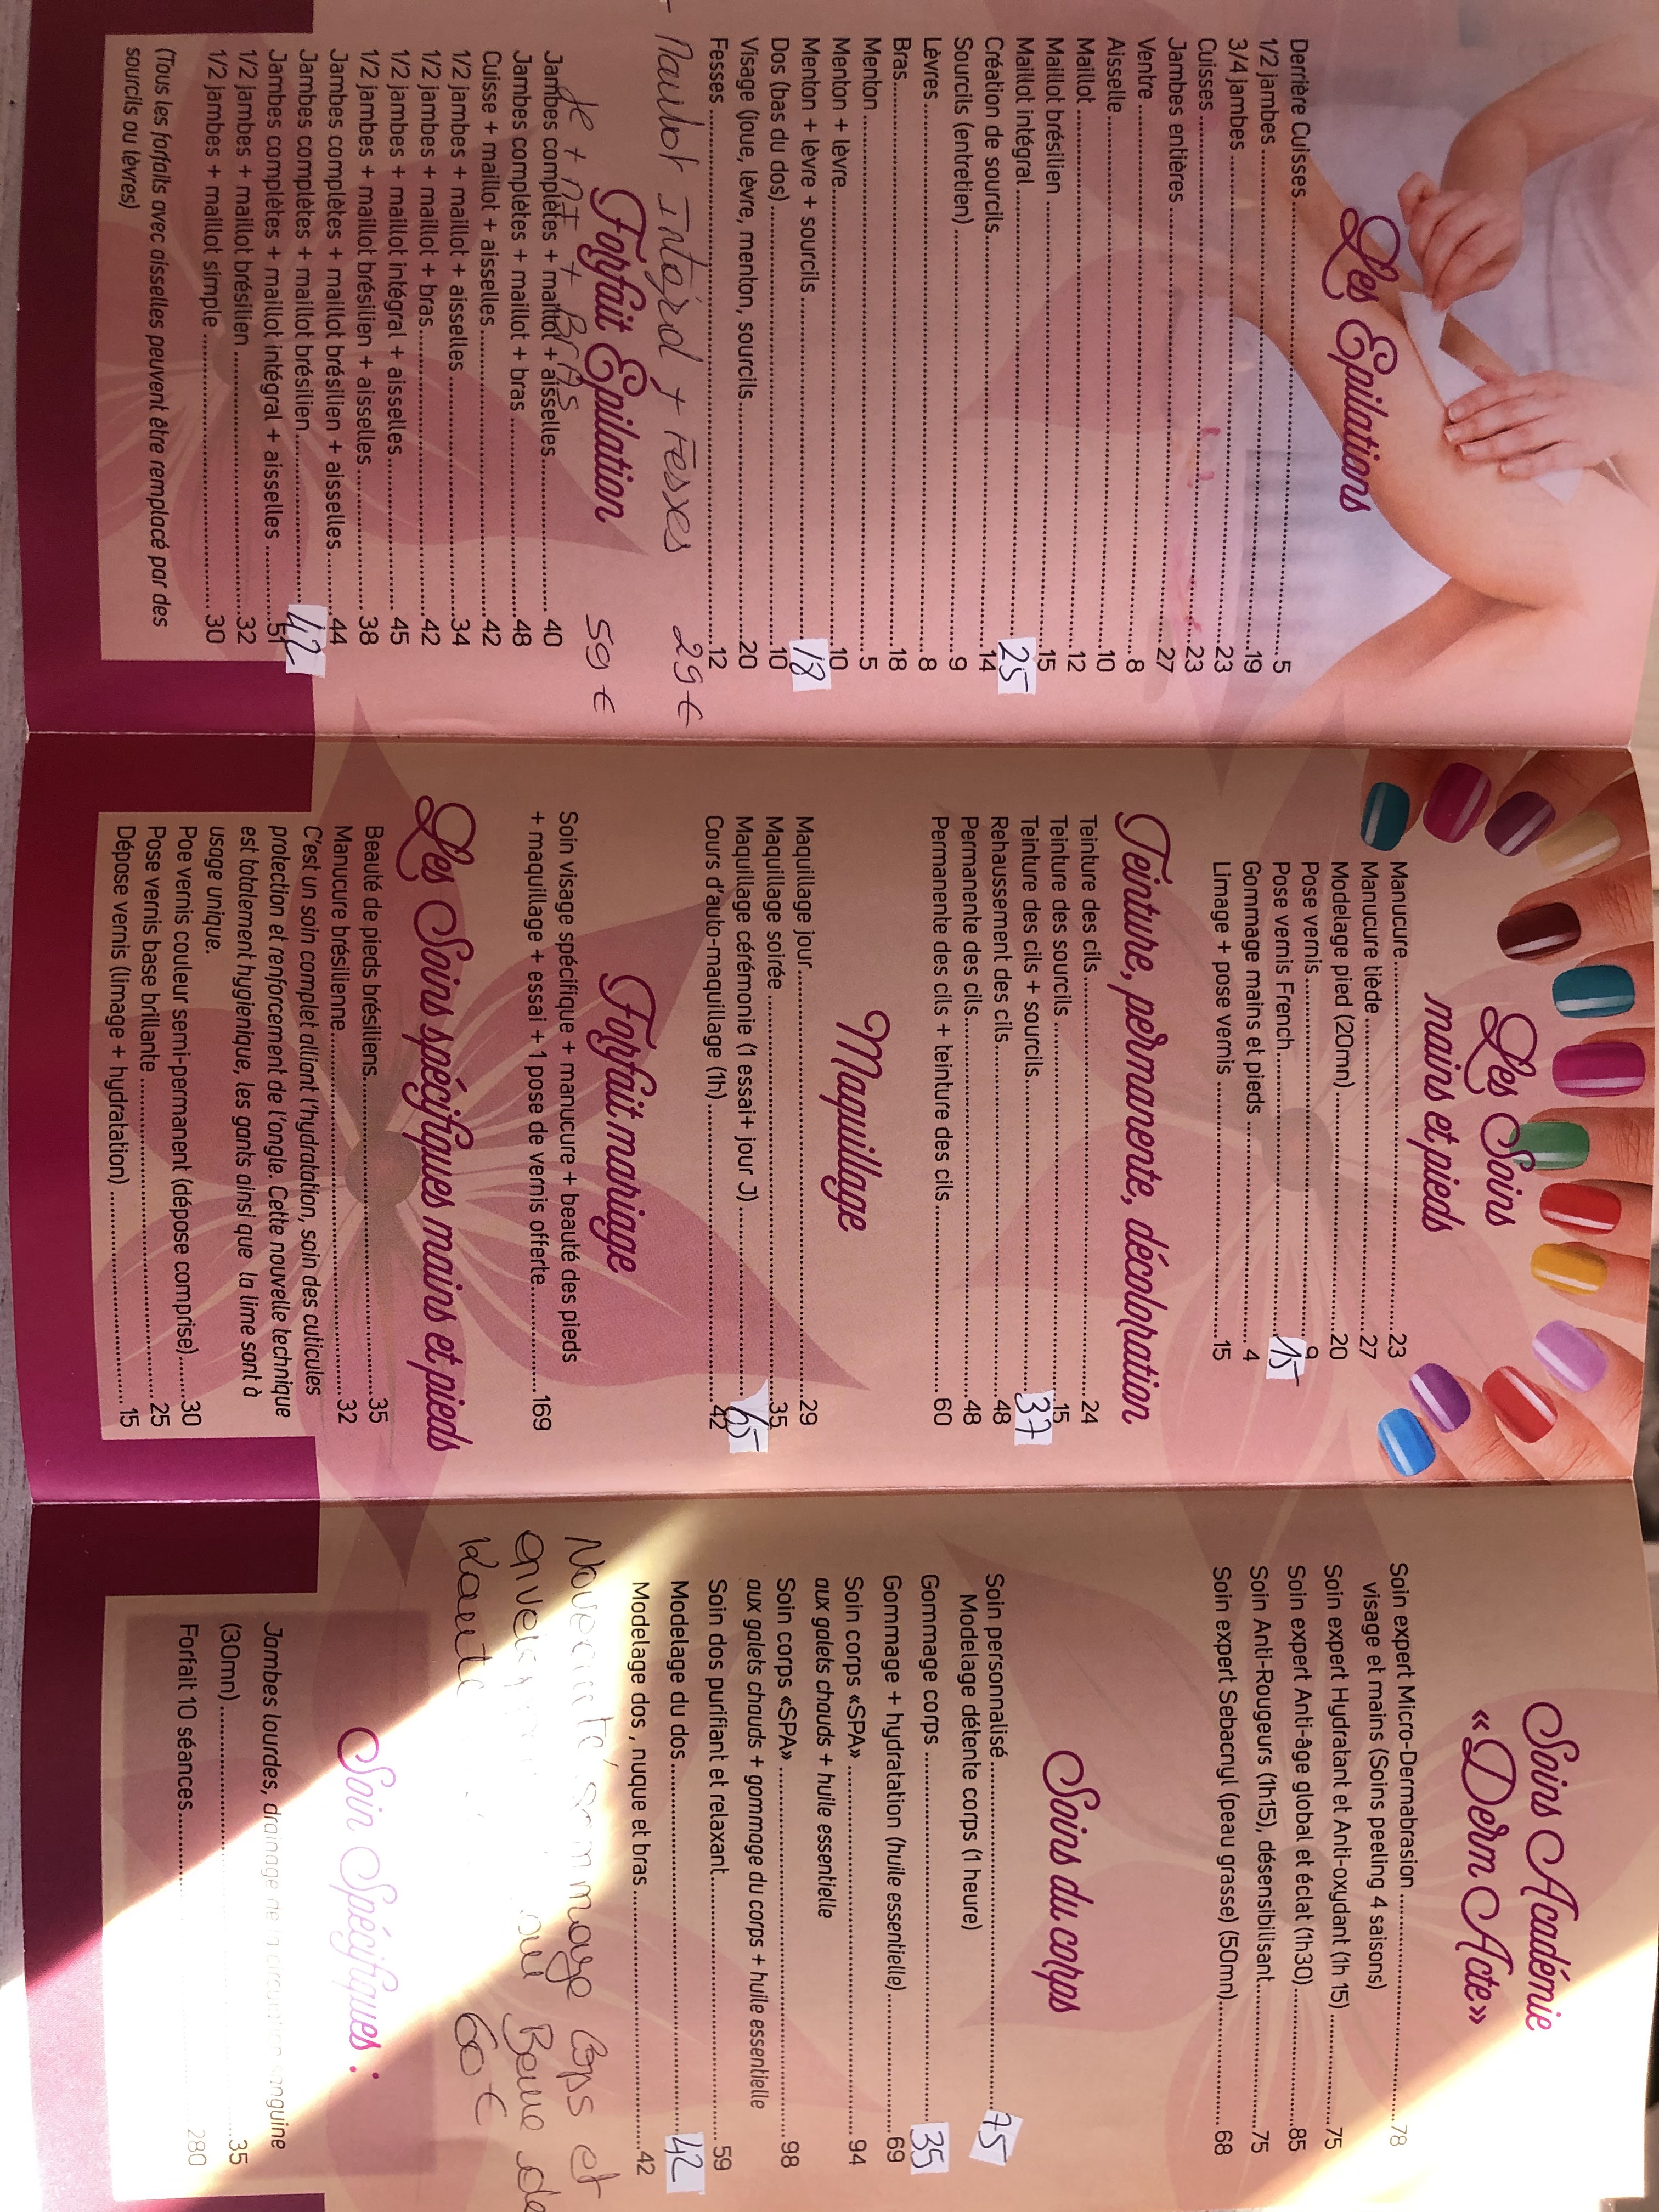 Les Epilations
Derrière Cuisses 5
1/2 jambes 19
3/4 jambes 23
Cuisses 23
Jambes entières 27
Ventre 8
Aisselle 10
Maillot 12
Maillot brésilien 15
Maillot intégral 25
Création de sourcils 14
Sourcils (entretien) 9
Lèvres 8
Bras 18
Menton 5
Menton + lèvre 10
Menton + lèvre + sourcils 18
Dos (bas du dos) 10
Visage (joue, lèvre, menton, sourcils 20
Fesses 12
Maillot Intégral + Fesses 29€
Forfait Épilation
+ Bras 59€
Jambes complètes + maillot + aisselles 40
Jambes complètes + maillot + bras 48
Cuisse + maillot + aisselles 42
1/2 jambes + maillot + aisselles 34
1/2 jambes + maillot + bras 42
1/2 jambes + maillot intégral + aisselles 45
1/2 jambes + maillot brésilien + aisselles 38
Jambes complètes + maillot brésilien + aisselles 44
Jambes complètes + maillot brésilien 42
Jambes complètes + maillot intégral + aisselles 51
1/2 jambes + maillot brésilien 32
1/2 jambes + maillot simple 30
(Tous les forfaits avec aisselles peuvent être remplacé par des
sourcils ou lèvres)
Les Soins
mains et pieds
Manucure 23
Manucure tiède 27
Modelage pied (20mn) 20
Pose vernis 9
Pose vernis French 15
Gommage mains et pieds 4
Limage + pose vernis 15
Teinture, permanente, décoloration
Teinture des cils 24
Teinture des sourcils 15
Teinture des cils + sourcils 37
Rehaussement des cils 48
Permanente des cils 48
Permanente des cils + teinture des cils 60
Maquillage
Maquillage jour 29
Maquillage soirée 35
Maquillage cérémonie (1 essai+ jour J) 65
Cours d'auto-maquillage (1h) 42
Forfait mariage
Soin visage spécifique + manucure + beauté des pieds
+ maquillage + essai + 1 pose de vernis offerte 169
Les Soins spécifiques mains et pieds
Beauté de pieds brésiliens 35
Manucure brésilienne 32
C'est un soin complet alliant l'hydratation, soin des cuticules
protection et renforcement de l'ongle. Cette nouvelle technique
est totalement hygienique, les gants ainsi que la lime sont à
usage unique.
Poe vernis couleur semi-permanent (dépose comprise) 30
Pose vernis base brillante 25
Dépose vernis (limage + hydratation) 15
Soins Académie
«Derm Acte»
Soin expert Micro-Dermabrasion 78
visage et mains (Soins peeling 4 saisons)
Soin expert Hydratant et Anti-oxydant (1h 15) 75
Soin expert Anti-âge global et éclat (1h30) 85
Soin Anti-Rougeurs (1h15), désensibilisant 75
Soin expert Sebacnyl (peau grasse) (50mn) 68
Soins du corps
Soin personnalisé 75
Modelage détente corps (1 heure)
Gommage corps 35
Gommage + hydratation (huile essentielle) 69
Soin corps «SPA» 94
aux galets chauds + huile essentielle
Soin corps «SPA» 98
aux galets chauds + gommage du corps + huile essentielle
Soin dos purifiant et relaxant 59
Modelage du dos 42
Modelage dos , nuque et bras 42
Nouveauté gommage Corps et
au Beurre de
Karité 60€
Soin Spécifiques :
Jambes lourdes, drainage de la circulation sanguine
(30mn) 35
Forfait 10 séances 280